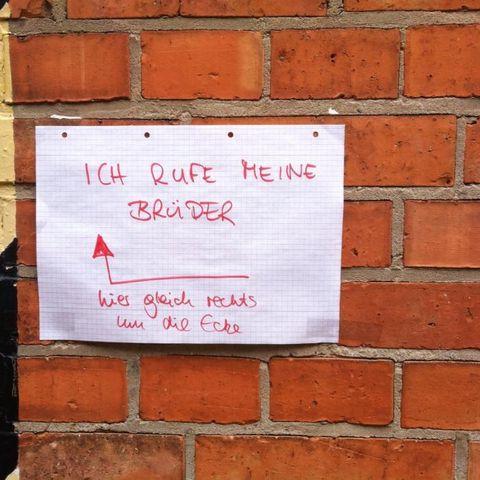 ICH RUFE MEINE
BRÜDER
hier gleich rechts
um die Ecke